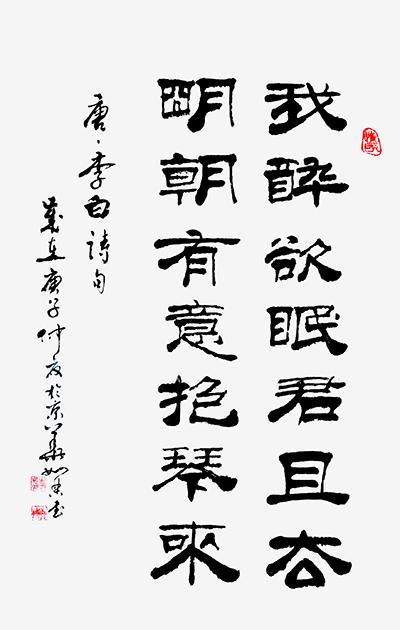 我醉欲眠君且去
明朝有意抱琴來
唐·李白詩句
歲在庚子仲夏於京